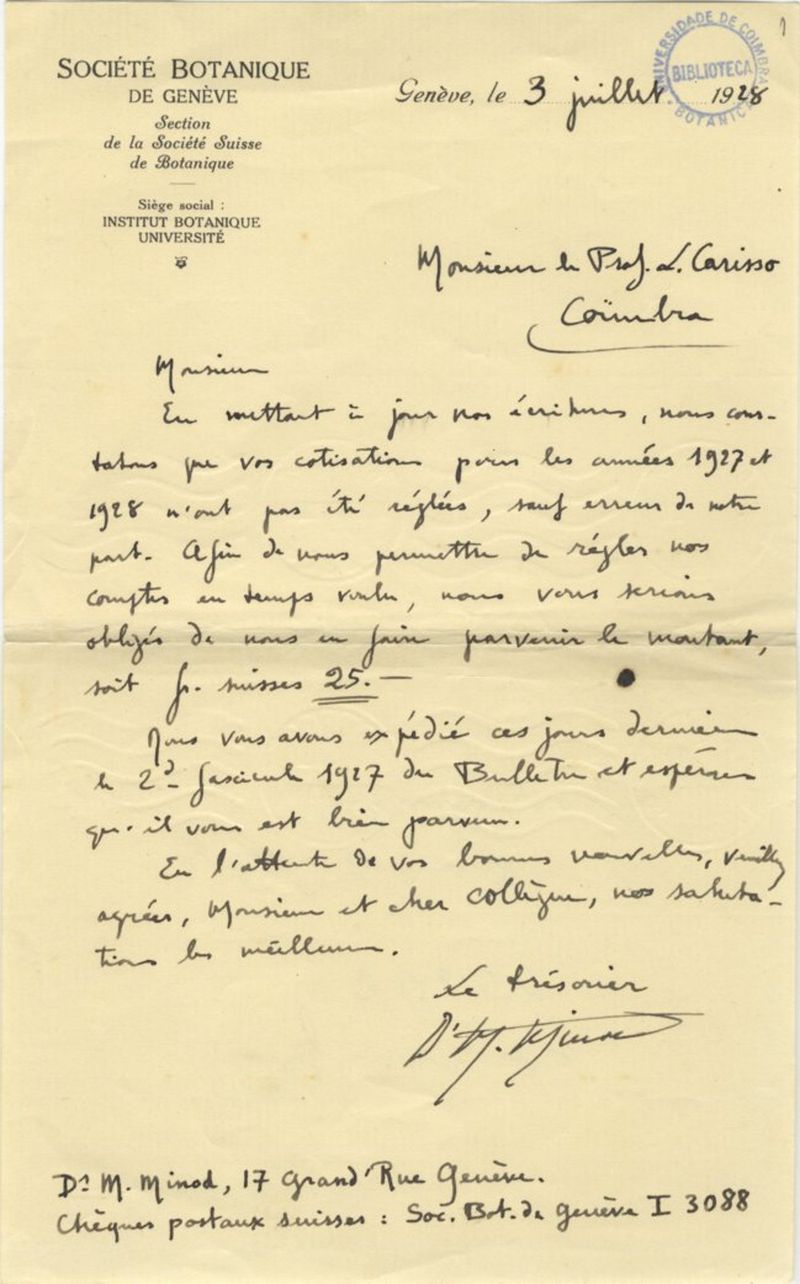 1
UNIVERSIDADE DE COIMBRA
BIBLIOTECA
BOTANICA
SOCIÉTÉ BOTANIQUE
DE GENÈVE
Section
de la Société Suisse
de Botanique
Siège social :
INSTITUT BOTANIQUE
UNIVERSITÉ
Genève, le 3 juillet 1928
Monsieur le Prof. L. Carisso
Coïmbra
Monsieur
En mettant à jour nos écritures, nous cons-
tatons que vos cotisations pour les années 1927 et
1928 n'ont pas été réglées, sauf erreur de notre
part. Afin de nous permettre de régler nos
comptes en temps voulu, nous vous serions
obligés de nous en faire parvenir le montant,
soit fr. suisses 25.—
Nous vous avons expédié ces jours derniers
le 2d fascicule 1927 du Bulletin et espérons
qu'il vous est bien parvenu.
En l'attente de vos bonnes nouvelles, veuillez
agréer, Monsieur et cher collègue, nos saluta-
tions les meilleures.
Le trésorier
Dr M. Minod
Dr M. Minod, 17 Grand'Rue Genève.
Chèques postaux suisses : Soc. Bot. de Genève I 3088